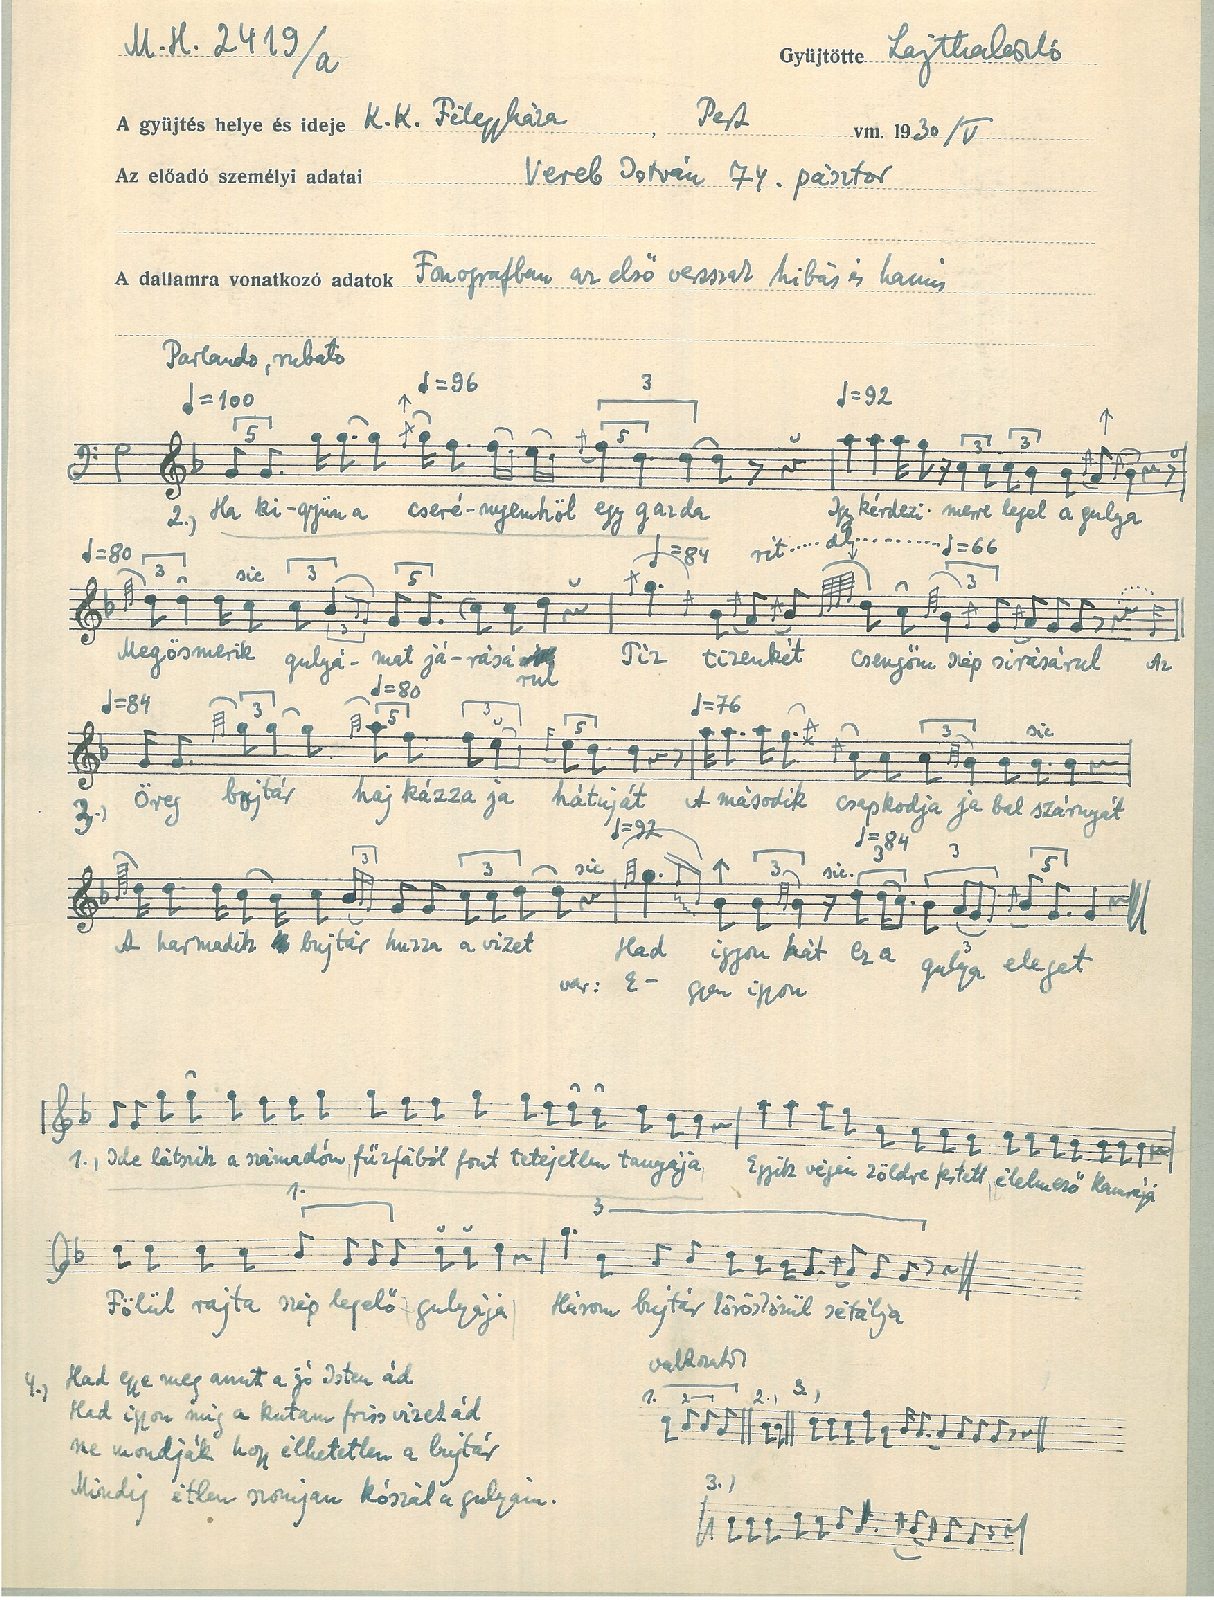 M.H. 2419/a
Gyüjtötte Lajtha László
A gyüjtés helye és ideje K.K. Félegyháza, Pest vm. 1930/V
Az előadó személyi adatai Vereb István 74. pásztor
A dallamra vonatkozó adatok Fonografban az első versszak hibás és hamis
Parlando, rubato
♩=100 ♩=96 3 ♩=92
5 5 3 3
2.) Ha ki-gyün a cseré-nyemből egy gazda Igy kérdezi merre legel a gulya
♩=80 ♩=84 rit..... ♩=66
3 sic 3 5 3
3
Megösmerik gulyá-mat já-rásá rul Tiz tizenkét csengőm szép sirásárul Az
♩=84 ♩=80 ♩=76
3 5 3 5 3 sic
3.) Öreg bojtár hajkázza ja hátuját A második csapkodja ja bal szárnyát
♩=92 ♩=84
3 3 sic 3 sic. 3 3 5
A harmadik bujtár huzza a vizet Had igyon hát ez a gulya eleget
3
var: E- gyen igyon
1., Ide látszik a számadóm fűzfából font tetejetlen tanyája Egyik végén zöldre festett élelmező kamrája
1. 3
Fölül rajta szép legelő gulyája Három bujtár körösközül sétálja
4., Had egye meg amit a jó Isten ád
Had igyon mig a kutam friss vizet ád
ne mondják hogy élhetetlen a bujtár
Mindig étlen szomjan kószál a gulyám.
1. 2 2., 3.)
3.)